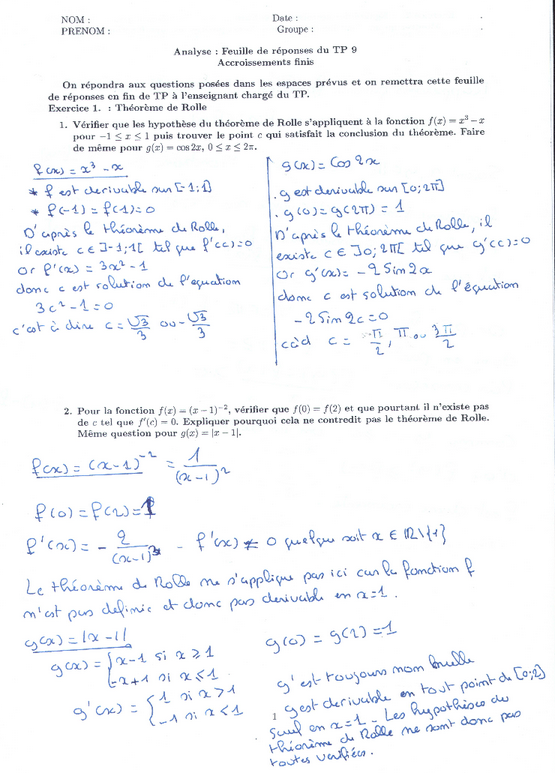 NOM :
Date :
PRENOM :
Groupe :
Analyse : Feuille de réponses du TP 9
Accroissements finis
On répondra aux questions posées dans les espaces prévus et on remettra cette feuille
de réponses en fin de TP à l'enseignant chargé du TP.
Exercice 1. : Théorème de Rolle
1. Vérifier que les hypothèse du théorème de Rolle s'appliquent à la fonction f(x) = x³ − x
pour −1 ≤ x ≤ 1 puis trouver le point c qui satisfait la conclusion du théorème. Faire
de même pour g(x) = cos 2x, 0 ≤ x ≤ 2π.
f(x) = x³ - x
* f est derivable sur [-1;1]
* f(-1) = f(1) = 0
D'après le théorème de Rolle,
il existe c ∈ ]-1;1[ tel que f'(c)=0
Or f'(x) = 3x² - 1
donc c est solution de l'equation
3c² - 1 = 0
c'est à dire c = √3/3 ou -√3/3
g(x) = Cos 2x
. g est derivable sur [0;2π]
. g(0) = g(2π) = 1
D'après le théorème de Rolle, il
existe c ∈ ]0;2π[ tel que g'(c)=0
Or g'(x) = -2 Sin 2x
donc c est solution de l'équation
-2 Sin 2c = 0
càd c = π/2, π ou 3π/2
2. Pour la fonction f(x) = (x − 1)⁻², vérifier que f(0) = f(2) et que pourtant il n'existe pas
de c tel que f'(c) = 0. Expliquer pourquoi cela ne contredit pas le théorème de Rolle.
Même question pour g(x) = |x − 1|.
f(x) = (x-1)⁻² = 1/(x-1)²
f(0) = f(2) = 1
f'(x) = - 2/(x-1)³ - f'(x) ≠ 0 quelque soit x ∈ ℝ\{1}
Le théorème de Rolle ne s'applique pas ici car la fonction f
n'est pas definie et donc pas derivable en x=1.
g(x) = |x-1|
g(x) = { x-1 si x ≥ 1
-x+1 si x ≤ 1
g'(x) = { 1 si x > 1
-1 si x < 1
g(0) = g(2) = 1
g' est toujours non nulle
g est derivable en tout point de [0;2]
sauf en x=1 - Les hypothèses du
théorème de Rolle ne sont donc pas
toutes verifiées.
1